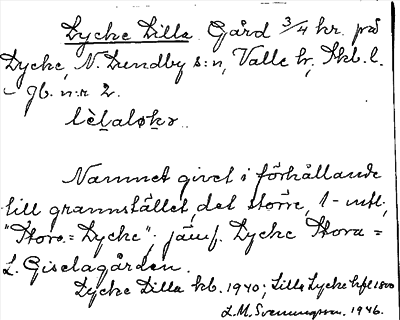 Lycke Lilla. Gård 3/4 hr. på
Lycke, N. Lundby s:n, Valle hr, Skb. l.
- Jb. n:r 2.
lèlaløkə.
Namnet givet i förhållande
till grannstället, det större, 1 - mtl,
"Stora = Lycke"; jämf. Lycke Stora =
L. Giselagården.
Lycke Lilla kb. 1940; Lilla Lycke hfl 1800
L.M. Svenungsson. 1946.